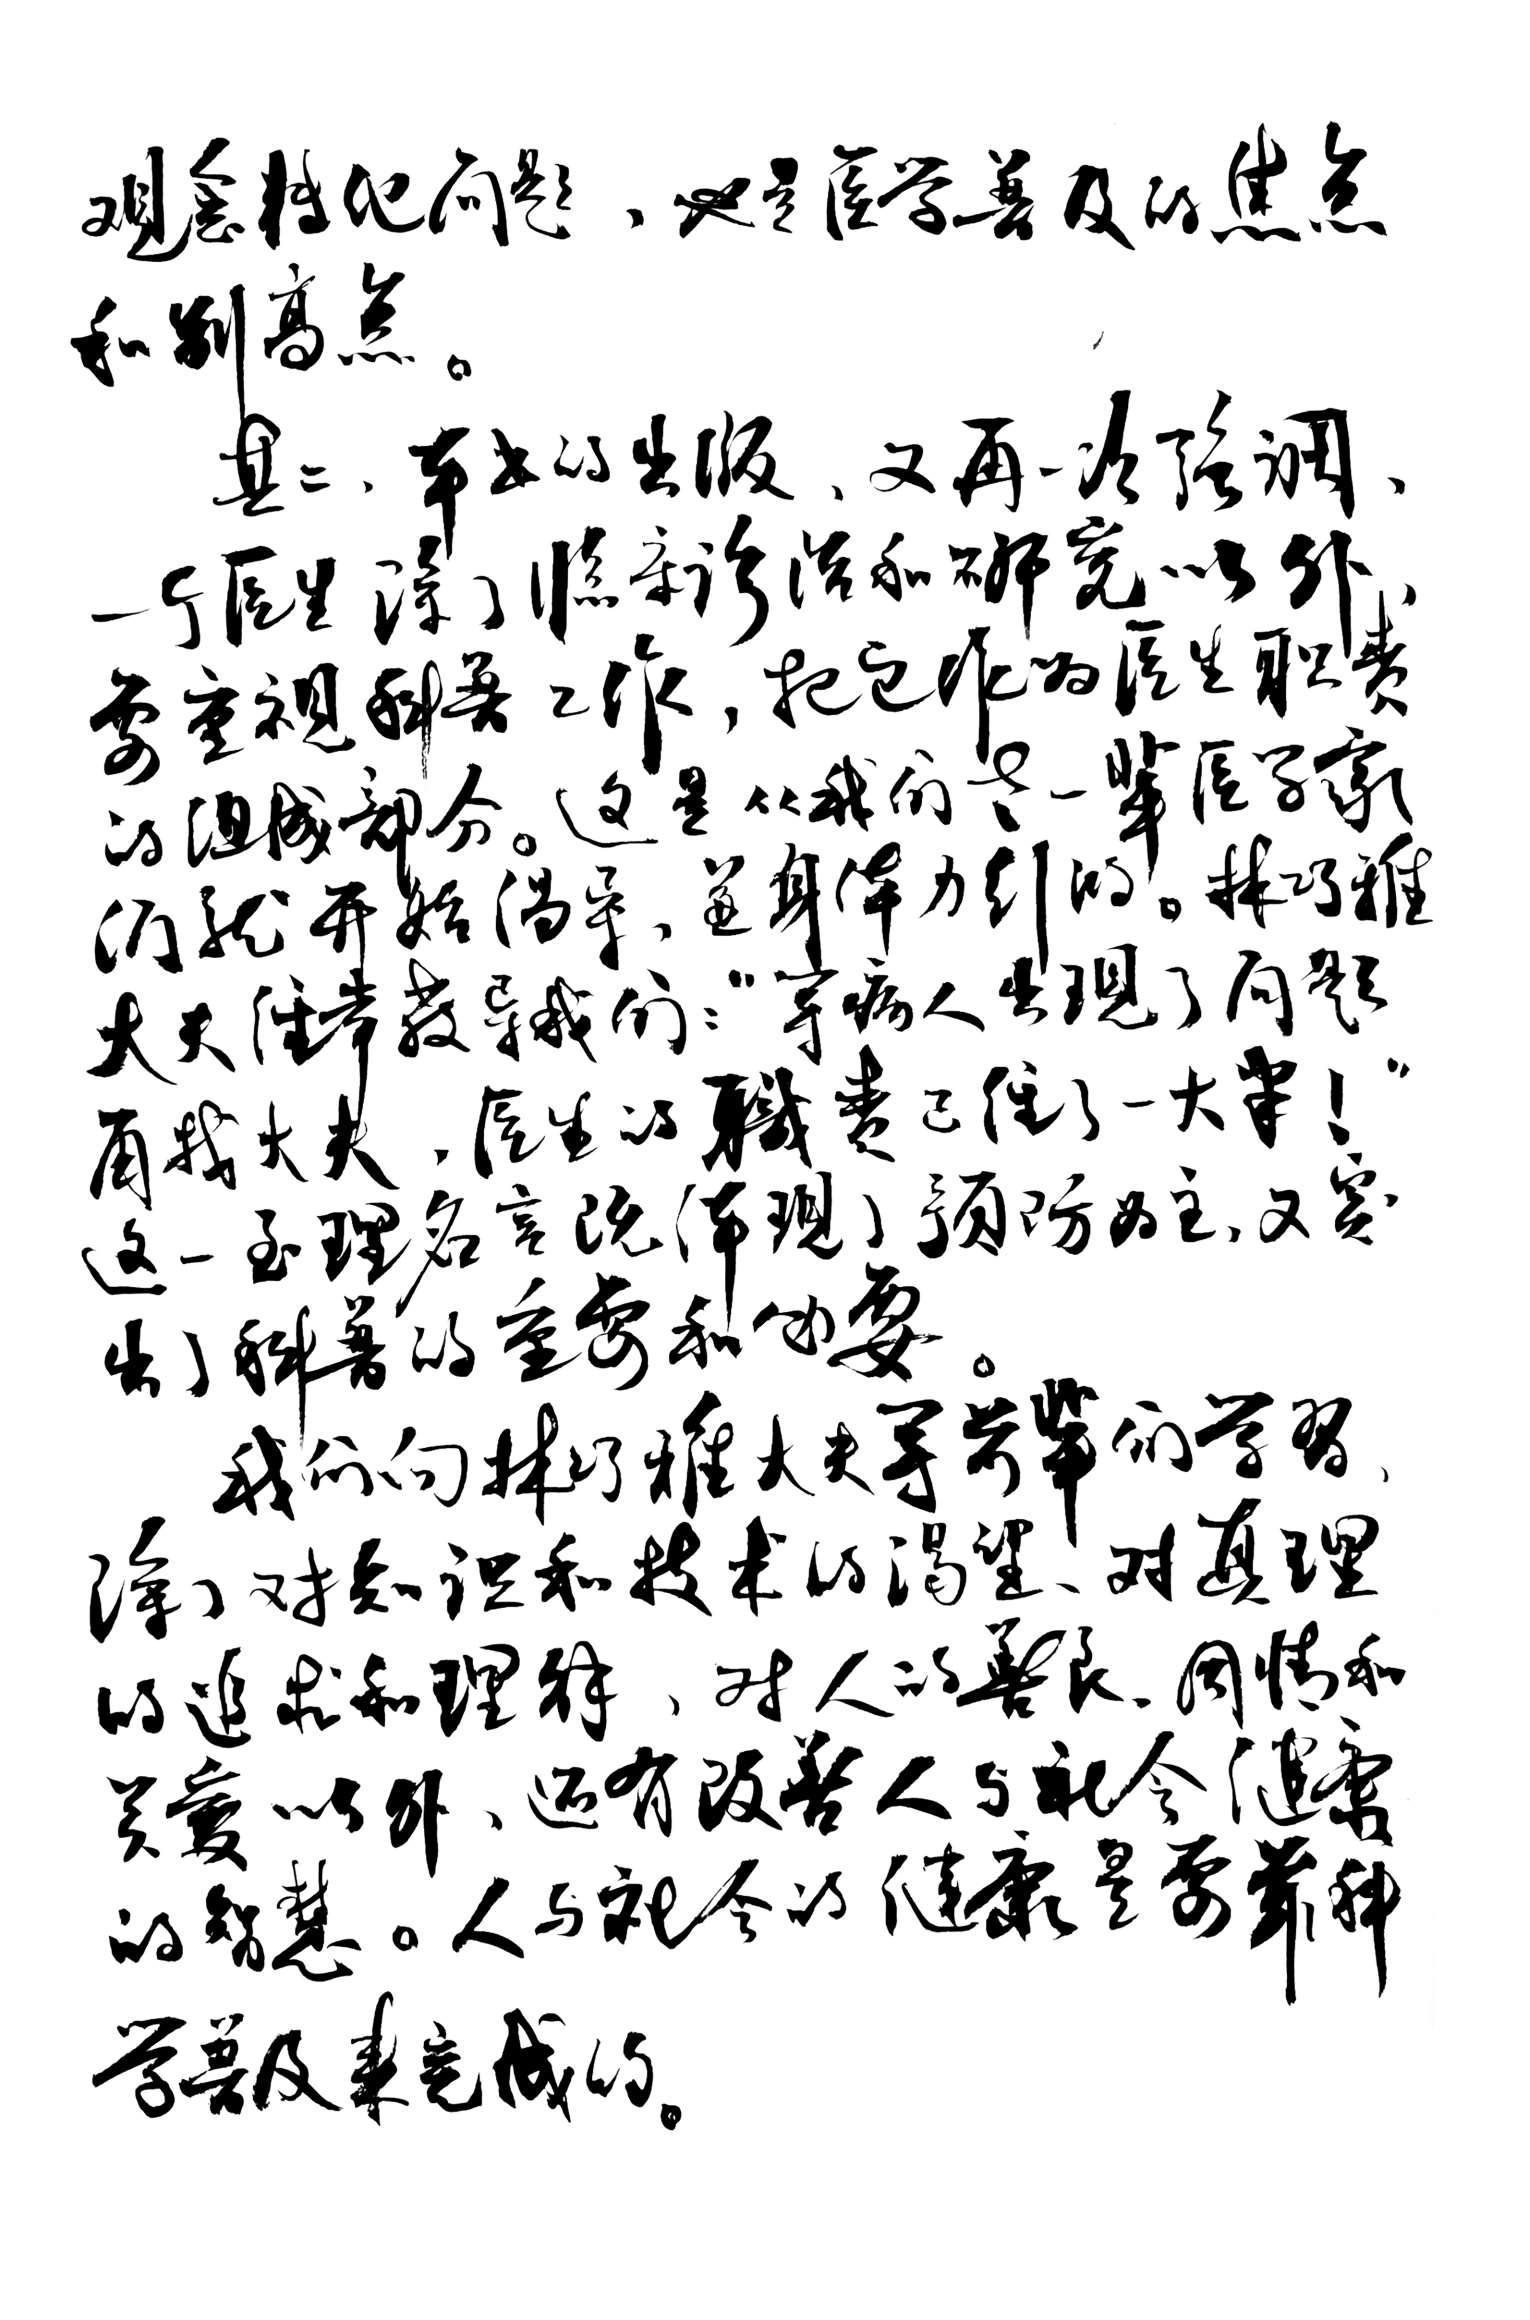 观念转化问题，也是医学普及的焦点
和制高点。
其二、本书的出版，又再一次强调，
一个医生除了临床诊治和研究以外，
要重视科普工作，把它作为医生职责
的组成部分。这是从我们老一辈医学家
们就开始倡导、并身体力行的。林巧稚
大夫经常教导我们："等病人出现了问题
再找大夫，医生的職责已经丢了一大半！"
这一至理名言既体现了预防为主，又突
出了科普的重要和必要。
我们向林巧稚大夫等前辈们学习，
除了对知识和技术的渴望、对真理
的追求和理解，对人的善良、同情和
关爱以外，还有改善人与社会健康
的智慧。人与社会的健康是要靠科
学普及来完成的。